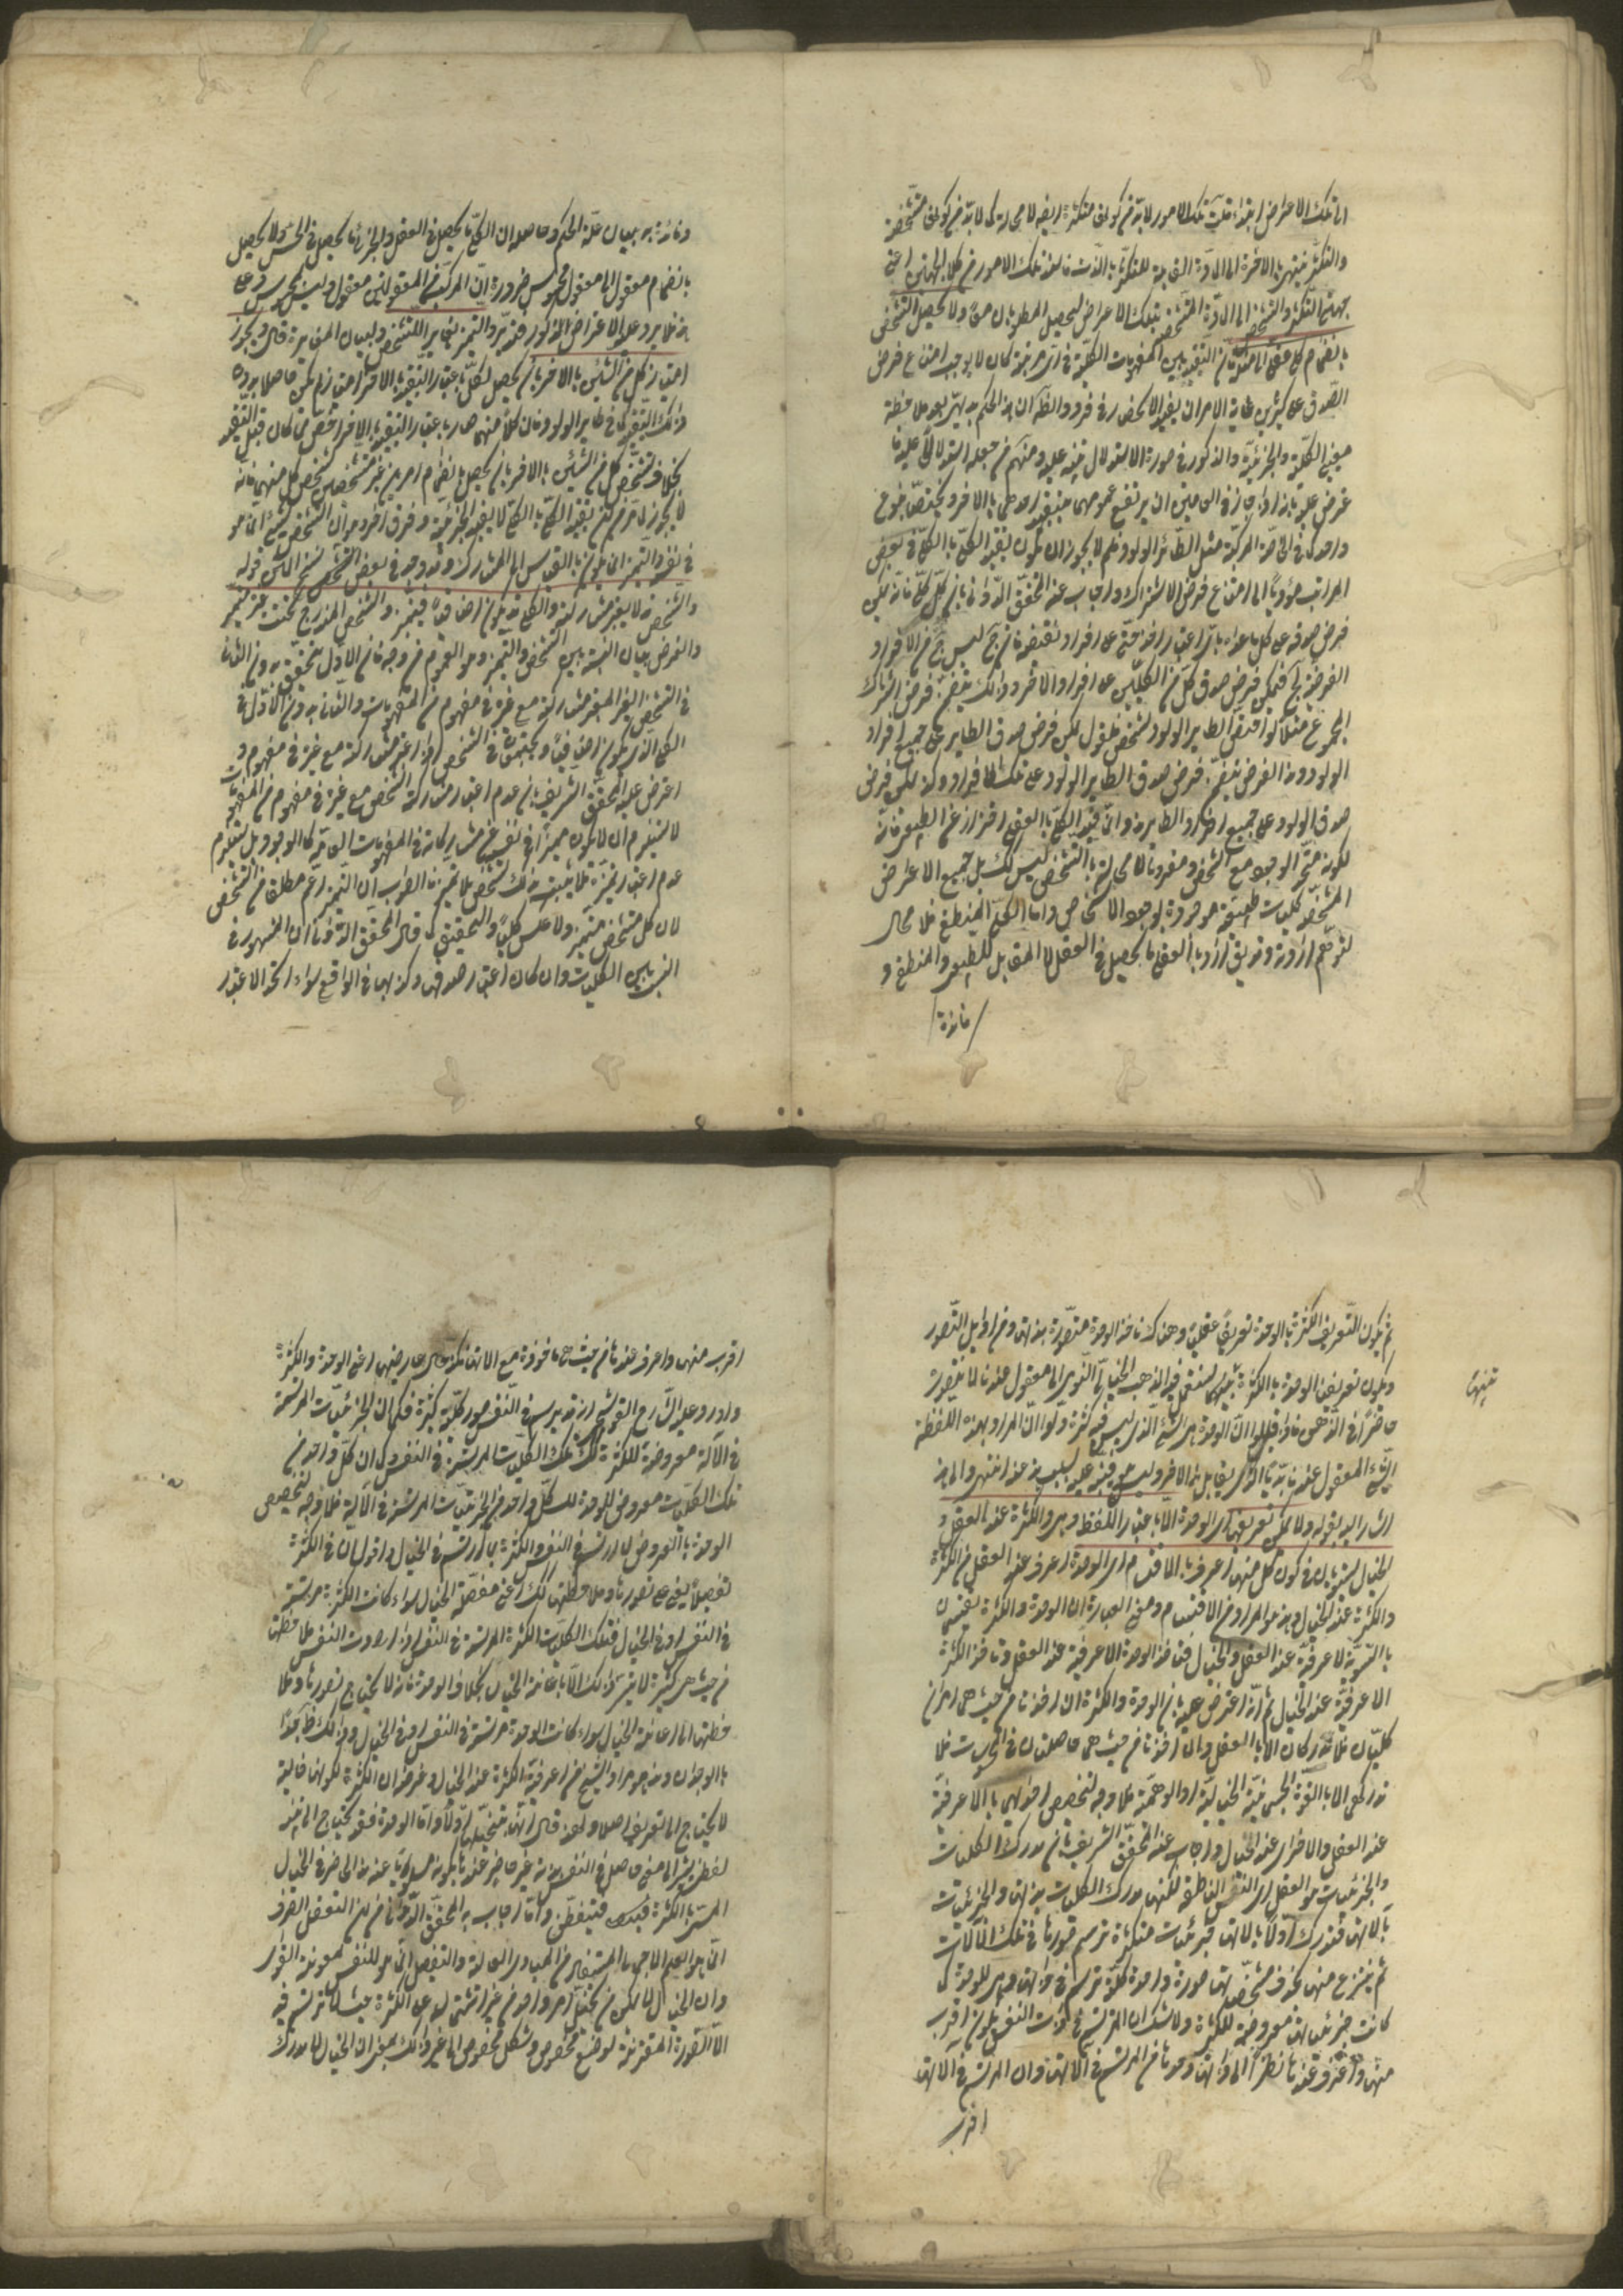 الى تلك الاعراض ابتداء قلت تلك الامور لابد من كونها متكثرة ايضا لا محالة كما لابد من كونها متشخصة
والتكثر ينتهى بالاخرة الى المادة القابلة للتكثر بالذات فاستند تلك الامور من كلا الجهتين اعنى
جهتى التكثر والتشخص الى المادة المتشخصة بتلك الاعراض ليحصل المطلوبان معا ولا يحصل التشخص
بانضمام كلى عقلى الى مثله فان التقييد بين المفهومات الكلية فى اى مرتبة كان لا يوجب امتناع فرض
الصدق على كثيرين غاية الامر ان يفيد الانحصار فى فرد والظ ان هذا الحكم بديهى بعد ملاحظة
معنى الكلية والجزئية والمذكور فى صورة الاستدلال تنبيه عليه ومنهم من جعله استدلاليا
عرض عليه بانه اذا جاز فى العامين ان يرتفع عمومهما بتقييد احدهما بالاخر ويختص المجموع
واحد كما فى الخاصة المركبة مثل الطائر الولود فلم لا يجوز ان يكون تقييد الكلى بالكلى فى بعض
المراتب مؤديا الى امتناع فرض الاشتراك واجاب عنه المحقق الدوانى بان كل كلى فانه يمكن
فرض صدقه على كل ما عداه
المجموع مثلا لو اقتضى الطاير الولود التشخص فنقول يمكن فرض صدق الطاير على جميع افراد
الولود وهذا الفرض يتضمن فرض صدق الطاير الولود على تلك الافراد وكذا يمكن فرض
صدق الولود على جميع افراد الطاير هذا وانما قيد الكلى بالعقلى احترازا عن الطبيعى فانه
لكونه متحد الوجود مع الشخص ومقرونا لا محالة بالتشخص ليس كك بل جميع الاعراض
المشخصة كليات طبيعية موجودة بوجود الاشخاص واما الكلى المنطقى فلا مجال
لتوهم ارادته وقد يق اراد بالعقلى ما يحصل فى العقل لا المقابل للطبيعى والمنطقى و
فائدته
وفائدته بيان علة الحكم وحاصله ان الكلى ما يحصل فى العقل والجزئى ما يحصل فى الحس ولا يحصل
بانضمام معقول الى معقول محسوس ضرورة ان المركب من المعقولين معقول وليس بمحسوس وعلى
هذا فلا يرد عليه الاعتراض المذكور فتدبر والتميز يغاير التشخص ولبيان المغايرة قال ويجوز
امتياز كل من الشيئين بالاخر بان يحصل لكل باعتبار التقييد بالاخر امتياز لم يكن حاصلا بدون
ذلك التقييد كما فى طاير الولود فان كلا منهما صار باعتبار التقييد بالاخر اخص مما كان قبل التقييد
بخلاف تشخص كل من الشيئين بالاخر بان يحصل بانضمام امرين غير متشخصين تشخص كل منهما فانه
لا يجوز لما مر من ان تقييد الكلى بالكلى لا يفيد الجزئية وفرق اخر هو ان التشخص للشئ انما هو
فى نفسه والتميز انما يكون بالقياس الى المشارك وقد وجد فى بعض النسخ المتن قوله
والتشخص قد لا يعتبر مشاركته والكلى قد يكون اضافيا فيتميز والشخص المندرج تحت غيره متميز
والغرض بيان النسبة بين التشخص والتميز وهو العموم من وجه فان الاول يتحقق بدون الثانى
فى الشخص الغير المعتبر مشاركته مع غيره فى مفهوم من المفهومات والثانى بدون الاول فى
الكلى الذى يكون اضافيا ويجتمعان فى الشخص اذا اعتبر مشاركته مع غيره فى مفهوم و
اعترض عليه المحقق الشريف بان عدم اعتبار مشاركة الشخص مع غيره فى مفهوم من المفهومات
لا يستلزم ان لا يكون مميزا فى نفسه عن مشاركاته فى المفهومات العامة كالوجود بل يستلزم
عدم اعتبار تميزه فلا يثبت بذلك تشخص بلا تميز فالصواب ان التميز اعم مطلقا من التشخص
لان كل متشخص متميز ولا عكس كليا والتحقيق ما قال المحقق الدوانى ان المشهور فى
النسب بين الكليات وان كان اعتبار صدقها وكذبها فى الواقع سواء امكن الاعتبار
ثم يكون التعريف الكثرة بالوحدة تعريفا عقليا وهناك ناخذ الوحدة متصورة بذاتها ومن اوايل التصور
ويكون تعريفنا الوحدة بالكثرة تنبيها نستعمل فيه المذهب الخيالى لنومى الى معقول عندنا لا نتصوره
تنبيها
حاضرا فى الذهن فاذا قيل ان الوحدة هى الشئ الذى ليس فيه كثرة دلوا ان المراد بهذه اللفظة
الشئ المعقول عندنا بديا الذى يقابل هذا الاخر وليس هو فينبه عليه بسلب هذا عنه انتهى والى هذا
اشار اليه بقوله ولا يمكن تعريفها اى الوحدة الا باعتبار اللفظ وهى والكثرة عند العقل و
الخيال تستويان فى كون كل منهما اعرف بالاقتسام اى الوحدة اعرف عند العقل من الكثرة
والكثرة عند الخيال وهذا هو المراد من الاقتسام ومعنى العبارة ان الوحدة والكثرة يقتسمان
بالسوية الاعرفية عند العقل والخيال فتاخذ الوحدة الاعرفية عند العقل وتاخذ الكثرة
الاعرفية عند الخيال ثم انه اعترض عليه بان الوحدة والكثرة ان اخذتا من حيث هما امران
كليان فلا تدركان الا بالعقل وان اخذتا من حيث هما حاصلتان فى الجزئيات فلا
تدركان الا بالقوة الجسمانية الخيالية او الوهمية فلا وجه لتخصيص احدهما بالاعرفية
عند العقل والاخرى عند الخيال واجاب عنه المحقق الشريف بان مدرك الكليات
والجزئيات هو العقل اى النفس الناطقة لكنها مدرك الكليات بذاتها والجزئيات
بآلاتها فتدرك اولا بآلاتها جزئيات متكثرة ترتسم صورها فى تلك الآلات
ثم ينتزع منها بحذف مشخصاتها صورة واحدة كلية ترتسم فى ذاتها وهى للوحدة كما
كانت جزئياتها معروضة للكثرة ولا شك ان المرتسم فى ذات النفس يكون اقرب
منها واعرف عندها نظرا الى ذاتها وحدها من المرتسم فى آلاتها وان المرتسم فى آلاتها
اقرب
اقرب منها واعرف عندها من حيث هى ماخوذة مع الآتها فكذا حال عارضيها اعنى الوحدة والكثرة
واورد عليه الشارح القوشجى انه قد يرتسم فى النفس صور كلية كثيرة فكما ان الجزئيات المرتسمة
فى الآلة معروضة للكثرة كك تلك الكليات المرتسمة فى النفس وكما ان كل واحد من
تلك الكليات معروض للوحدة كك كل واحد من الجزئيات المرتسمة فى الآلة فلا وجه لتخصيص
الوحدة بالعروض لما ارتسم فى النفس والكثرة بما ارتسم فى الخيال واقول ان فى الكثرة
تفصيلا يعنى على تصورها وملاحظتها كك اعنى مفصلة الخيال سواء كانت الكثرة مرتسمة
فى النفس او فى الخيال فتلك الكليات الكثيرة المرتسمة فى النفس اذا ارادت النفس ملاحظتها
من حيث هى كثيرة لا يتيسر ذلك الا باعانة الخيال بخلاف الوحدة فانه لا يحتاج تصورها وملا
حظتها الى اعانة الخيال سواء كانت الوحدة مرتسمة فى النفس او فى الخيال وذلك ظ جدا
بالوجدان وهذا هو مراد الشيخ من اعرفية الكثرة عند الخيال وغرضه ان الكثرة لكونها خيالية
لا يحتاج الى تعريف اصلا ولهذا قال انها متخيلة اولا واما الوحدة فقد يحتاج الى تنبيه
لفظى يشير الى معنى حاصل فى النفس
المسمى بالكثرة فتدبر فيتفطن واما اجاب به المحقق الدوانى من ان التعقل الصرف
انما هو العلم الاجمالى المستفاد من المبادى العالية والتفصيل انما هو للنفس بمعونة القوى
وان الخيال لا يمكن من تخيل امر واحد من غير اشتماله على الكثرة حيث لا ترتسم فيه
الا الصورة المقترنة بوضع مخصوص وشكل مخصوص الى غير ذلك بمعنى ان الخيال لا يدرك